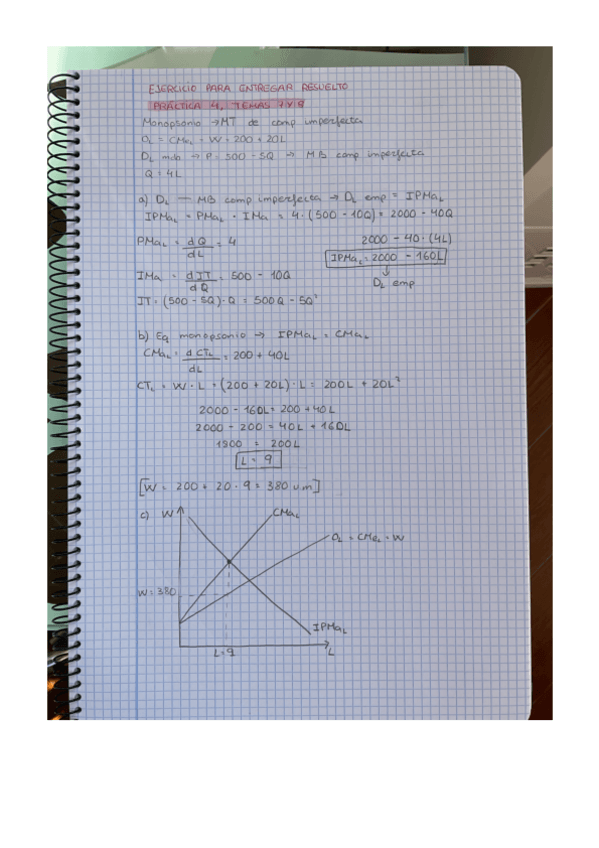 EJERCICIO PARA ENTREGAR RESUELTO
PRÁCTICA 4, TEMAS 7 Y 9
Monopsonio → MT de comp imperfecta
OL = CMeL = W = 200 + 20L
DL mdo → P = 500 - 5Q → MB comp imperfecta
Q = 4L
a) DL — MB comp imperfecta → DL emp = IPMaL
IPMaL = PMaL · IMa = 4 · (500 - 10Q) = 2000 - 40Q
PMaL = dQ/dL = 4
2000 - 40 · (4L)
IPMaL = 2000 - 160L
↓
DL emp
IMa = dIT/dQ = 500 - 10Q
IT = (500 - 5Q) · Q = 500Q - 5Q²
b) Eq monopsonio → IPMaL = CMaL
CMaL = dCTL/dL = 200 + 40L
CTL = W · L = (200 + 20L) · L = 200L + 20L²
2000 - 160L = 200 + 40L
2000 - 200 = 40L + 160L
1800 = 200L
L = 9
[W = 200 + 20 · 9 = 380 u m]
c) W
CMaL
OL = CMeL = W
W = 380
IPMaL
L = 9
L